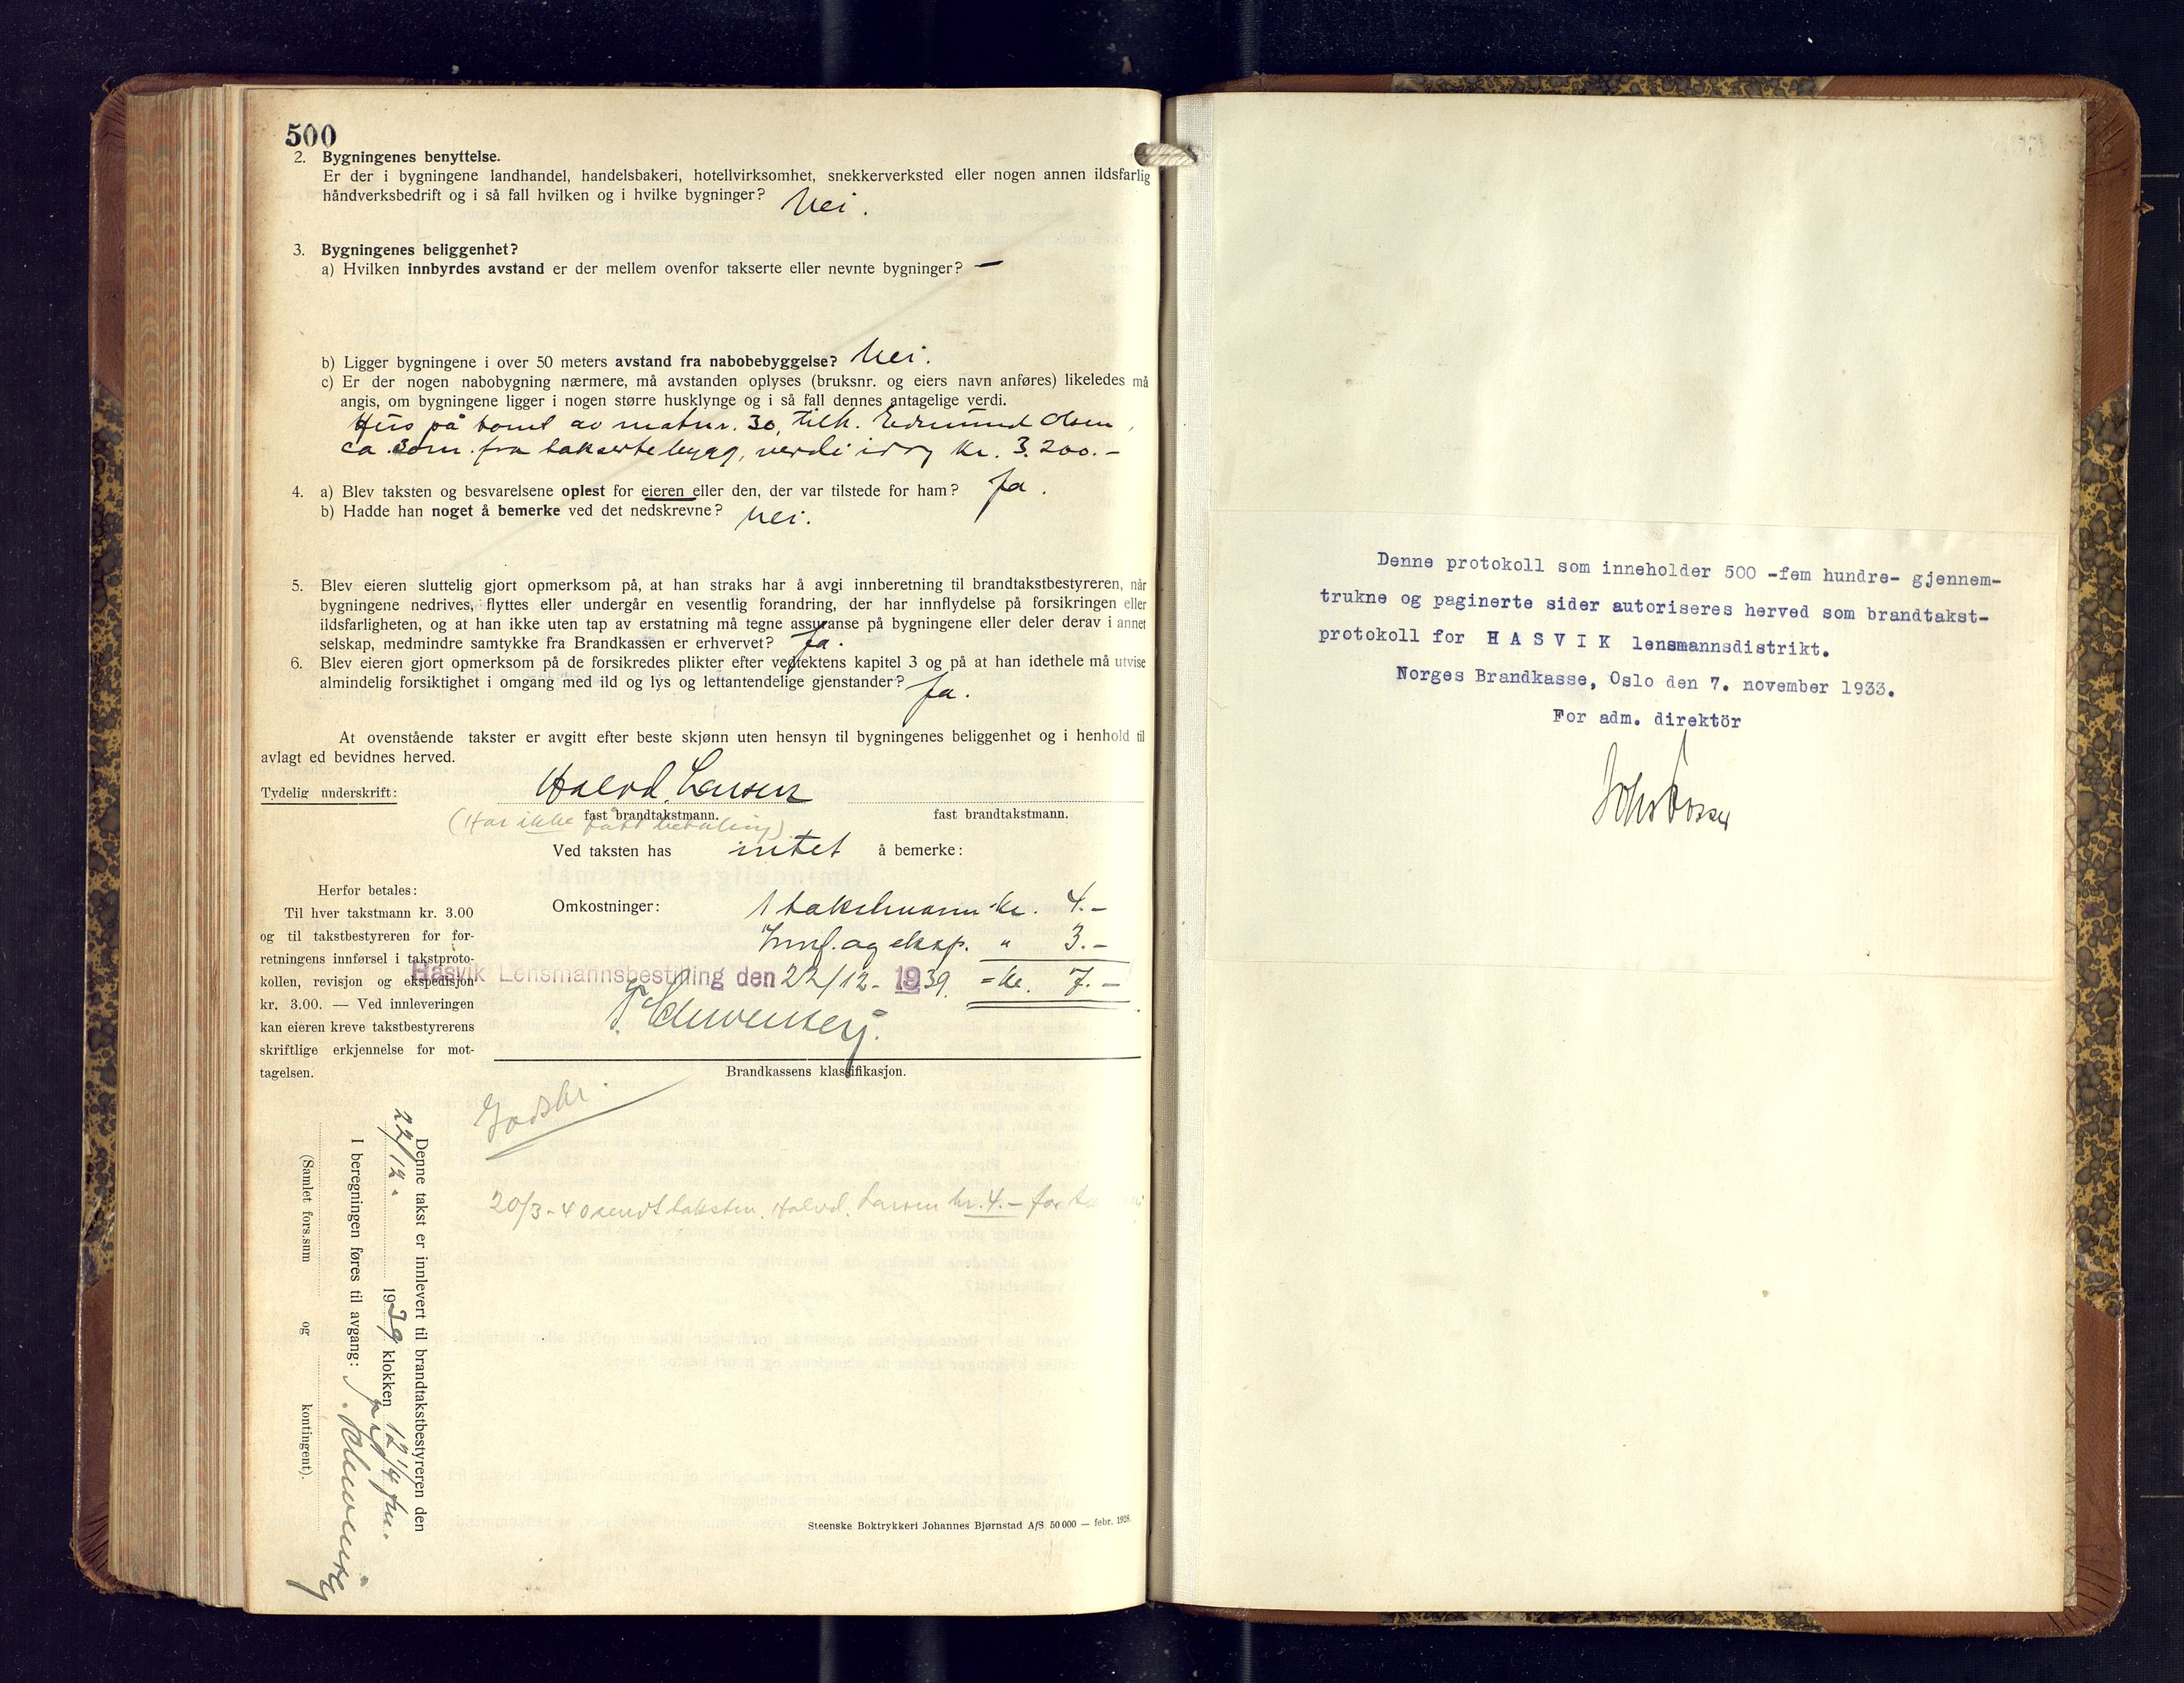 500
2. Bygningenes benyttelse.
Er der i bygningene landhandel, handelsbakeri, hotellvirksomhet, snekkerverksted eller nogen annen ildsfarlig
håndverksbedrift og i så fall hvilken og i hvilke bygninger? Nei.
3. Bygningenes beliggenhet?
a) Hvilken innbyrdes avstand er der mellem ovenfor takserte eller nevnte bygninger? —
b) Ligger bygningene i over 50 meters avstand fra nabobebyggelse? Nei.
c) Er der nogen nabobygning nærmere, må avstanden oplyses (bruksnr. og eiers navn anføres) likeledes må
angis, om bygningene ligger i nogen større husklynge og i så fall dennes antagelige verdi.
Hus på tomt av matnr. 30, tilh. Edmund Olsen,
ca. 30m. fra takserte bygg, verdi idag kr. 3.200.-
4. a) Blev taksten og besvarelsene oplest for eieren eller den, der var tilstede for ham? Ja.
b) Hadde han noget å bemerke ved det nedskrevne? Nei.
5. Blev eieren sluttelig gjort opmerksom på, at han straks har å avgi innberetning til brandtakstbestyreren, når
bygningene nedrives, flyttes eller undergår en vesentlig forandring, der har innflydelse på forsikringen eller
ildsfarligheten, og at han ikke uten tap av erstatning må tegne assuranse på bygningene eller deler derav i annet
selskap, medmindre samtykke fra Brandkassen er erhvervet? Ja.
6. Blev eieren gjort opmerksom på de forsikredes plikter efter vedtektens kapitel 3 og på at han idethele må utvise
almindelig forsiktighet i omgang med ild og lys og lettantendelige gjenstander? Ja.
At ovenstående takster er avgitt efter beste skjønn uten hensyn til bygningenes beliggenhet og i henhold til
avlagt ed bevidnes herved.
Tydelig underskrift: Halvd. Larsen
fast brandtakstmann. fast brandtakstmann.
(Har ikke fått betaling)
Ved taksten has intet å bemerke:
Herfor betales:
Til hver takstmann kr. 3.00
og til takstbestyreren for for-
retningens innførsel i takstproto-
kollen, revisjon og ekspedisjon
kr. 3.00. — Ved innleveringen
kan eieren kreve takstbestyrerens
skriftlige erkjennelse for mot-
tagelsen.
Omkostninger: 1 takstmann kr. 4.-
Innf. og eksp. " 3.-
Hasvik Lensmannsbestilling den 22/12- 1939. = kr. 7.-
Brandkassens klassifikasjon.
20/3-40 sendt takstm. Halvd. Larsen kr. 4.- for
Denne takst er innlevert til brandtakstbestyreren den
22/12. 1939 klokken 12 1/4 fm.
I beregningen føres til avgang:
(Samlet fors.sum og kontingent).
Steenske Boktrykkeri Johannes Bjørnstad A/S 50 000 — febr. 1928.
Denne protokoll som inneholder 500 -fem hundre- gjennem-
trukne og paginerte sider autoriseres herved som brandtakst-
protokoll for H A S V I K lensmannsdistrikt.
Norges Brandkasse, Oslo den 7. november 1933.
For adm. direktör